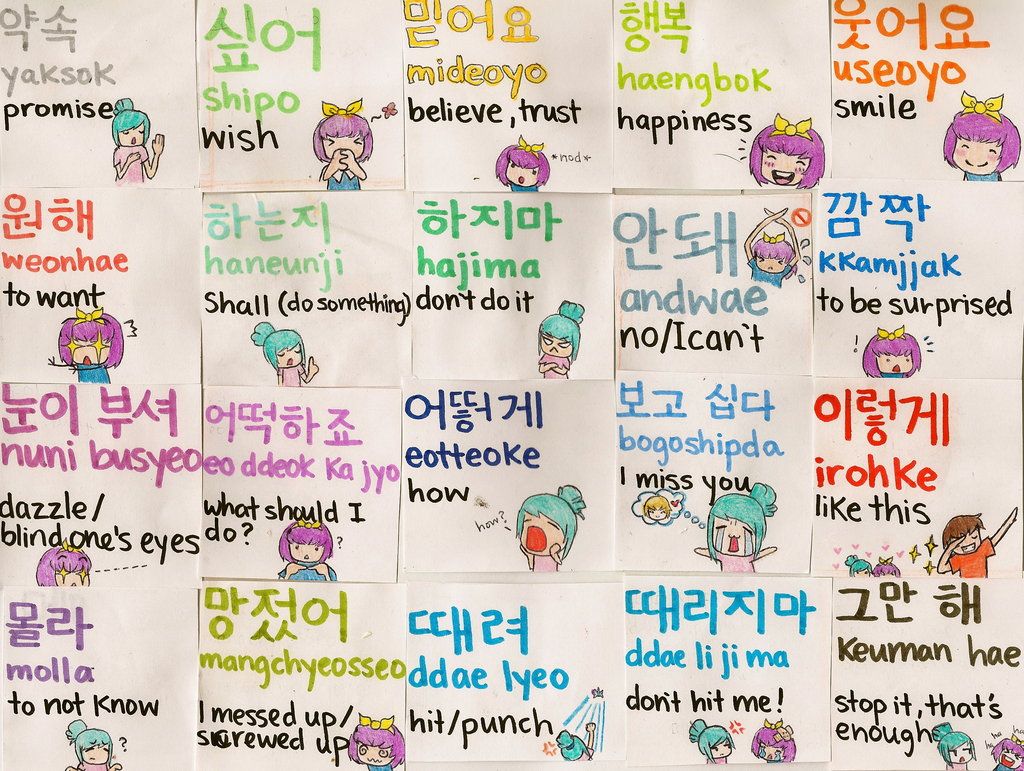 약속
yaksok
promise
싶어
shipo
wish
믿어요
mideoyo
believe, trust
*nod*
행복
haengbok
happiness
웃어요
useoyo
smile
원해
weonhae
to want
하는지
haneunji
Shall (do something)
하지마
hajima
don't do it
안돼
andwae
no/I can't
깜짝
kkamjjak
to be surprised
!
눈이 부셔
nuni busyeo
dazzle/
blind one's eyes
어떡하죠
eo ddeok ka jyo
what should I
do?
?
어떻게
eotteoke
how
how?
보고 십다
bogoshipda
I miss you
이렇게
irohke
like this
몰라
molla
to not know
?
망졌어
mangchyeosseo
I messed up/
screwed up
때려
ddae lyeo
hit/punch
때리지마
ddae li ji ma
don't hit me!
그만 해
keuman hae
stop it, that's
enough
ha ha ha